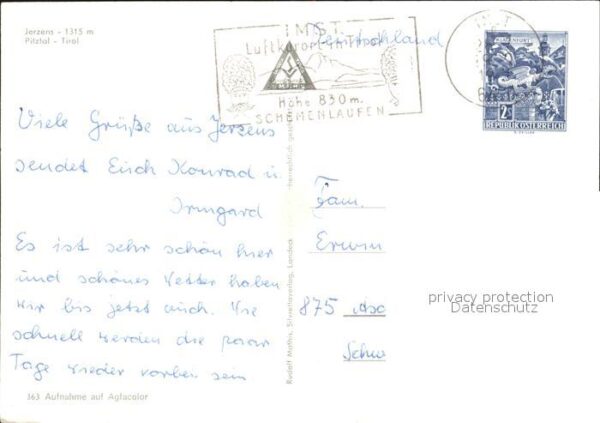 Jerzens - 1315 m
Pitztal - Tirol
IMST
Luftkurort i. Tirol
Höhe 830 m.
SCHEMENLAUFEN
Deutschland
IMST
2S
REPUBLIK ÖSTERREICH
Viele Grüße aus Jerzens
sendet Euch Konrad u.
Irmgard
Es ist sehr schön hier
und schönes Wetter haben
wir bis jetzt auch. Wie
schnell werden die paar
Tage wieder vorbei sein
Rudolf Mathis, Silvrettaverlag, Landeck
Fam.
Erwin
875
Schw
privacy protection
Datenschutz
363 Aufnahme auf Agfacolor